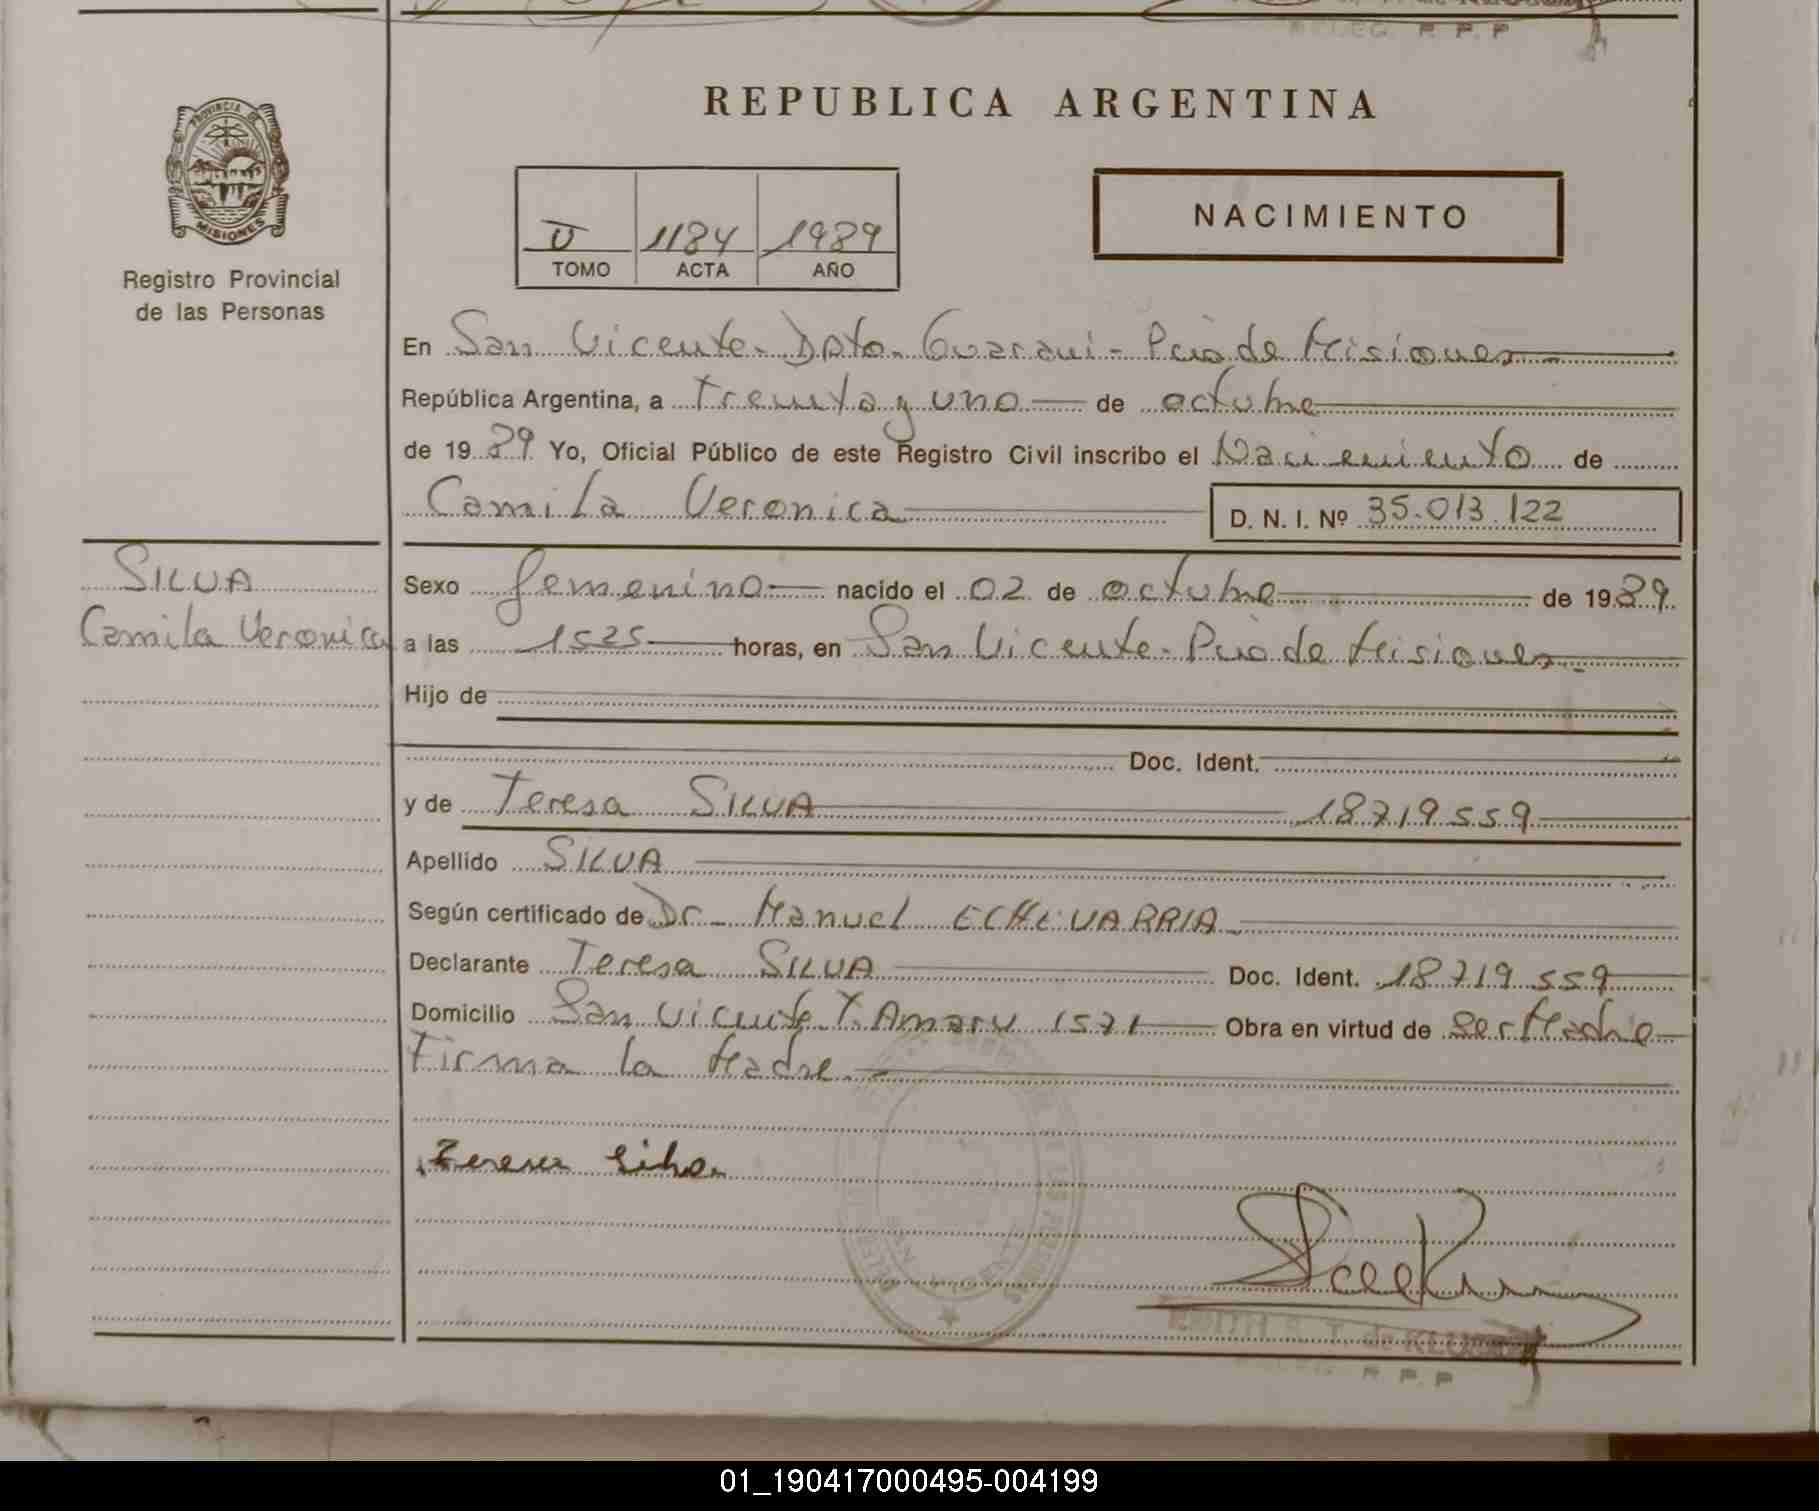 DELEG. R. P. P
REPUBLICA ARGENTINA
PROVINCIA DE
MISIONES
Registro Provincial
de las Personas
NACIMIENTO
U 1184 1989
TOMO ACTA AÑO
En San Vicente - Dpto. Guarani - Pcia de Misiones
República Argentina, a treinta y uno de octubre
de 1989 Yo, Oficial Público de este Registro Civil inscribo el Nacimiento de
Camila Veronica D. N. I. Nº 35.013.122
SILVA
Camila Veronica
Sexo femenino nacido el 02 de octubre de 1989
a las 1525 horas, en San Vicente - Pcia de Misiones
Hijo de
Doc. Ident.
y de Teresa SILVA 18719559
Apellido SILVA
Según certificado de Dr. Manuel ECHEVARRIA
Declarante Teresa SILVA Doc. Ident. 18719559
Domicilio San Vicente T. Amaru 1571 Obra en virtud de Ser Madre
Firma la Madre
Teresa Silva
R. P. P
01_190417000495-004199